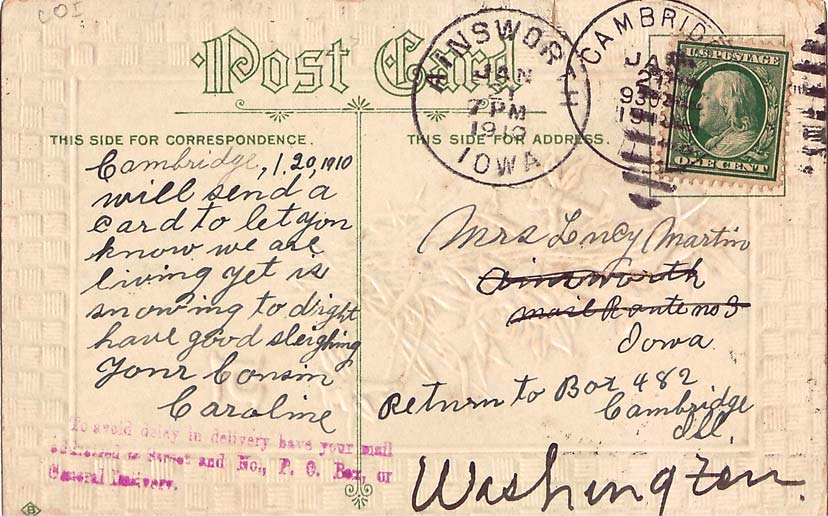 COI
Post Card
THIS SIDE FOR CORRESPONDENCE.
Cambridge, 1.20, 1910
will send a
card to let you
know we are
living yet is
snowing to dright
have good sleighing
Your Cousin
Caroline
To avoid delay in delivery have your mail
addressed to Street and No., P. O. Box, or
General Delivery.
THIS SIDE FOR ADDRESS.
AINSWORTH
JAN
21
7 PM
1910
IOWA
CAMBRIDGE
JAN
21
930
U.S. POSTAGE
ONE CENT
Mrs Lucy Martin
Ainsworth
Mail Route no 3
Iowa
Return to Box 482
Cambridge
Ill.
Washington.